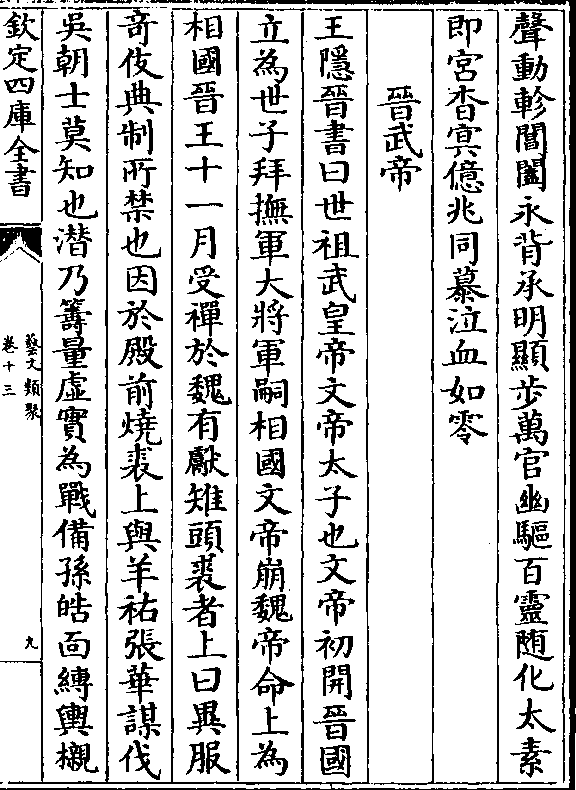 聲動軫閶闔永背承明顯步萬官幽驅百靈随化太素
即宮杳寞億兆同慕泣血如零
晉武帝
王隱晉書曰世祖武皇帝文帝太子也文帝初開晉國
立為世子拜撫軍大將軍嗣相國文帝崩魏帝命上為
相國晉王十一月受禪於魏有獻雉頭裘者上曰異服
奇伎典制所禁也因於殿前燒裘上與羊祜張華謀伐
吳朝士莫知也潜乃籌量虛實為戰備孫皓面縛輿櫬
欽定四庫全書
藝文類聚
卷十三
九